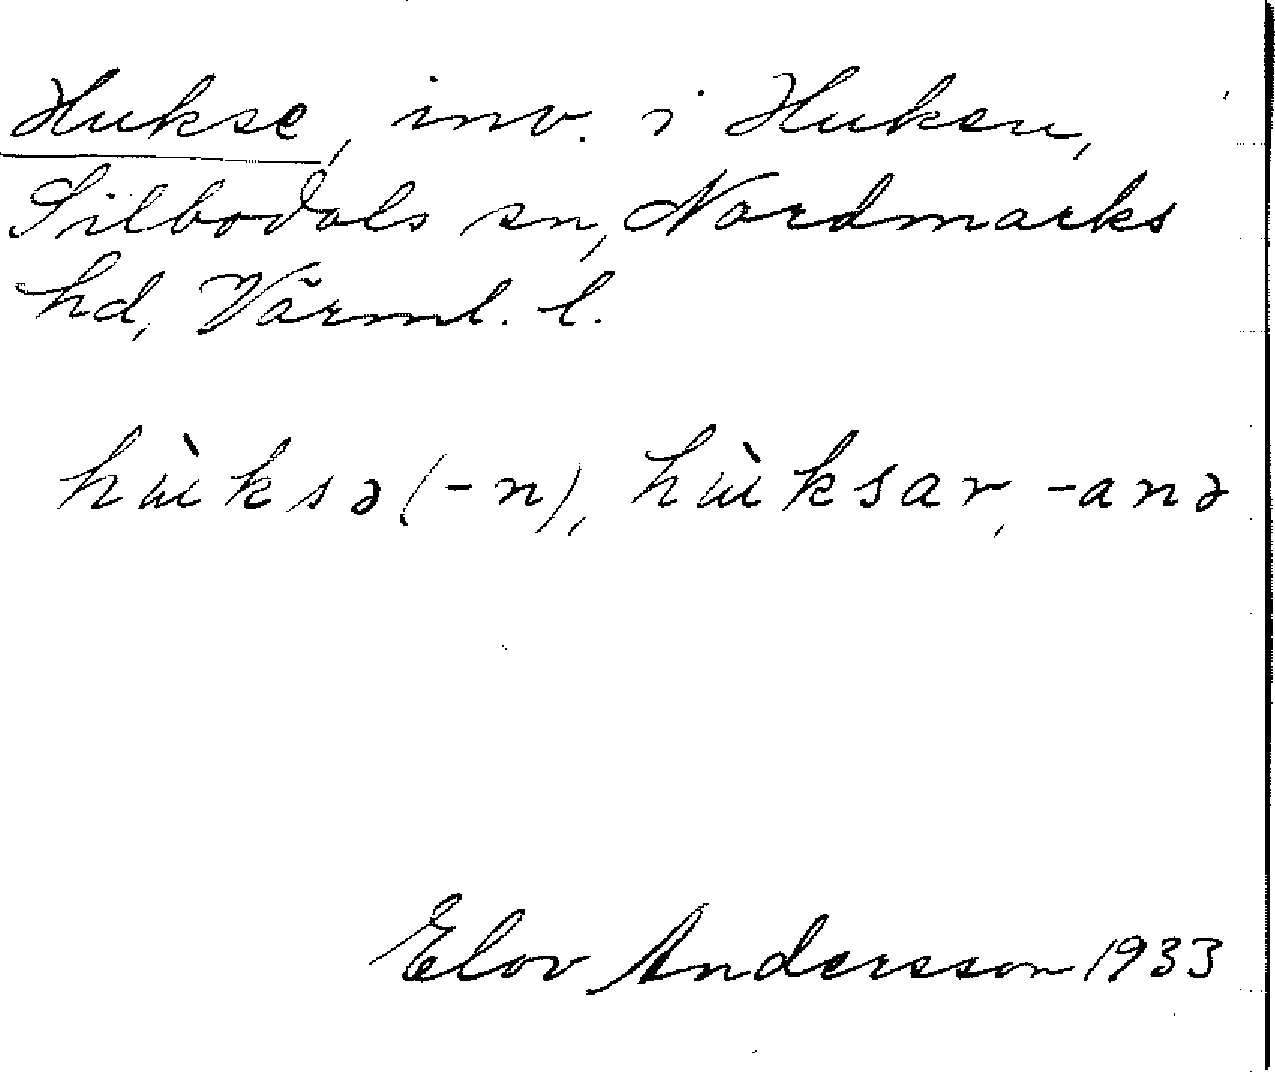 Hukse, inv. i Huken,
Silbodals sn, Nordmarks
hd, Värml. l.
hɯ̀ksə(-n), hɯ̀ksar, -anə
Elov Andersson 1933